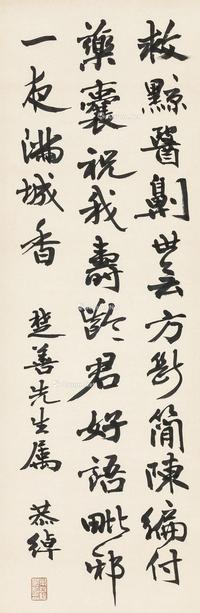 救黥醫劓世無方斷簡陳編付
藥囊祝我壽齡君好語毗邪
一夜滿城香 楚善先生屬 恭綽